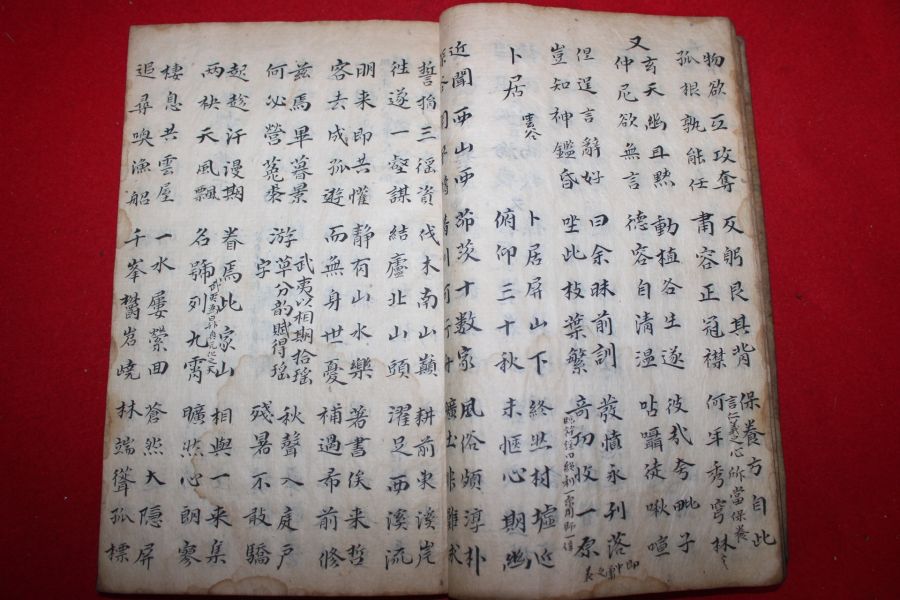 物欲互攻奪 反躬艮其背 保養方自此
孤根孰能任 肅容正冠襟 何年秀穹林
言仁義之心所當保養
又
玄天幽且默 動植各生遂 彼哉夸毗子
仲尼欲無言 德容自清溫 呫囁徒啾喧
但逞言辭好 曰余昧前訓 發憤永刋落
豈知神鑑昏 坐此枝葉繁 奇功收一原
卜居 雲谷 卜居屏山下 終然村墟近
俯仰三十秋 未愜心期幽
近聞西山西 茆茨十數家 風俗頗淳朴
誓捐三徑資 伐木南山巔 耕前東溪岸
往遂一壑謀 結廬北山頭 濯足西溪流
明來即共懽 靜有山水樂 著書俟來哲
客去成孤遊 而無身世憂 補過希前修
茲焉畢暮景 武夷以相期拾瑤 秋聲入庭戶
何必營菟裘 游草分韵賦得瑤字 殘暑不敢驕
起趁汗漫期 眷焉此家山 相與一來集
兩袂天風飄 名號列九霄 曠然心朗寥
棲息共雲屋 一水屢縈回 蒼然大隱屏
追尋喚漁船 千峯鬱岧嶢 林端聳孤標